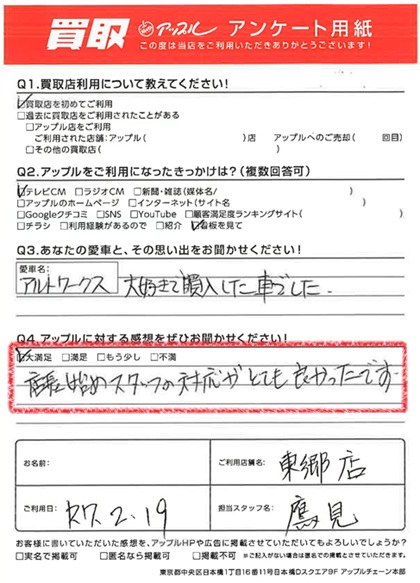 買取 アップル アンケート用紙
この度は当店をご利用いただきありがとうございます!
Q1.買取店利用について教えてください!
☑買取店を初めてご利用
□過去に買取店をご利用されたことがある
□アップル店をご利用
ご利用された店舗:アップル( )店 アップルへのご売却( 回目)
□その他の買取店( )
Q2.アップルをご利用になったきっかけは?(複数回答可)
☑テレビCM □ラジオCM □新聞・雑誌(媒体名/ )
□アップルのホームページ □インターネット(サイト名 )
□Googleクチコミ □SNS □YouTube □顧客満足度ランキングサイト( )
□チラシ □利用経験があるので □紹介 ☑看板を見て
Q3.あなたの愛車と、その思い出をお聞かせください!
愛車名:
アルトワークス 大好きで購入した車でした.
Q4.アップルに対する感想をぜひお聞かせください!
☑大満足 □満足 □もう少し □不満
店長始めスタッフの対応がとても良かったです
お名前:
ご利用店舗名: 東郷店
ご利用日: R7.2.19
担当スタッフ名: 鷹見
お客様に書いていただいた感想を、アップルHPや広告に掲載させていただいてもよろしいでしょうか?
□実名で掲載可 □匿名なら掲載可 □掲載不可 ※ご記入がない場合は匿名での掲載とさせていただきます。
東京都中央区日本橋1丁目16番11号日本橋Dスクエア9F アップルチェーン本部